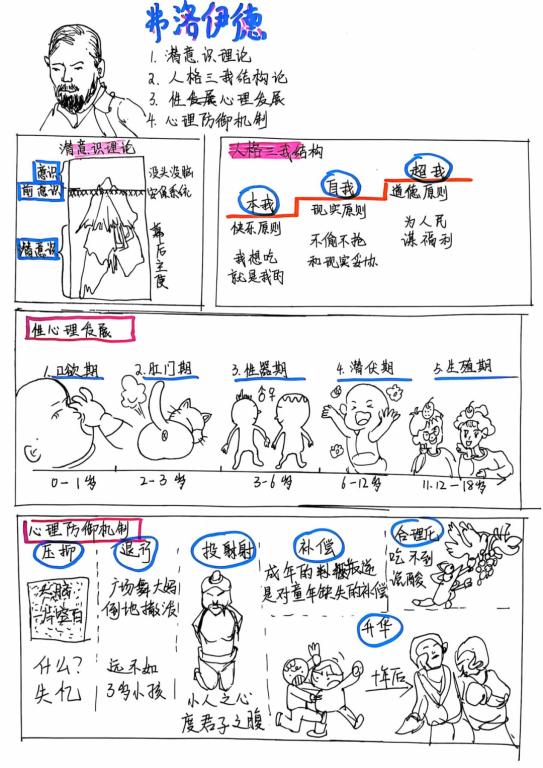 弗洛伊德
1. 潜意识理论
2. 人格三我结构论
3. 性心理发展
4. 心理防御机制
潜意识理论
意识
前意识
潜意识
没头没脑
安保系统
幕后主使
人格三我结构
本我
快乐原则
我想吃
就是我的
自我
现实原则
不偷不抢
和现实妥协
超我
道德原则
为人民
谋福利
性心理发展
1.口欲期
2.肛门期
3.性器期
4.潜伏期
5.生殖期
0-1岁
2-3岁
3-6岁
6-12岁
11.12-18岁
心理防御机制
压抑
头脑
一片空白
什么?
失忆
退行
广场舞大妈
倒地撒泼
还不如
3岁小孩
投射
小人之心
度君子之腹
补偿
成年的
是对童年缺失的补偿
合理化
吃不到
说酸
升华
十年后